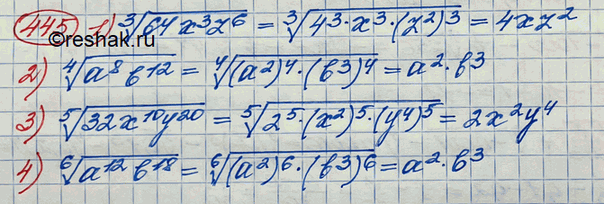 445 1) ∛(64x³z⁶) = ∛(4³·x³·(z²)³) = 4xz²
©reshak.ru
2) ⁴√(a⁸b¹²) = ⁴√((a²)⁴·(b³)⁴) = a²·b³
3) ⁵√(32x¹⁰y²⁰) = ⁵√(2⁵·(x²)⁵·(y⁴)⁵) = 2x²y⁴
4) ⁶√(a¹²b¹⁸) = ⁶√((a²)⁶·(b³)⁶) = a²·b³